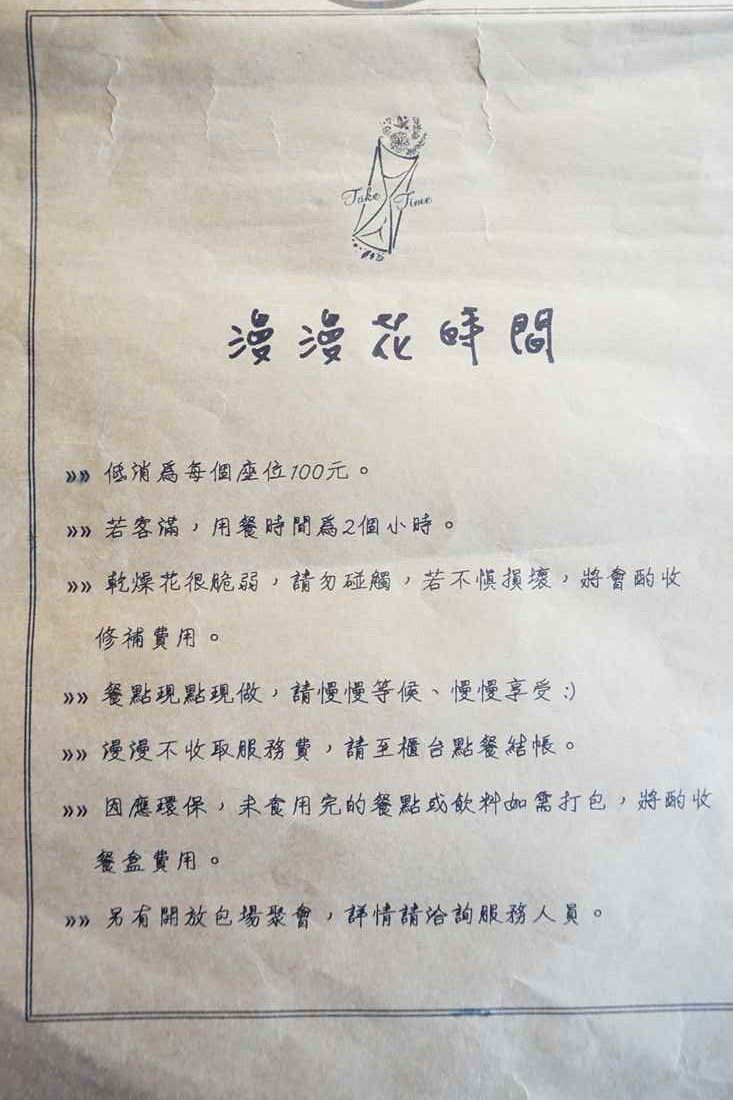 Take Time
漫漫花時間
»» 低消為每個座位100元。
»» 若客滿，用餐時間為2個小時。
»» 乾燥花很脆弱，請勿碰觸，若不慎損壞，將會酌收
修補費用。
»» 餐點現點現做，請慢慢等候、慢慢享受:)
»» 漫漫不收取服務費，請至櫃台點餐結帳。
»» 因應環保，未食用完的餐點或飲料如需打包，將酌收
餐盒費用。
»» 另有開放包場聚會，詳情請洽詢服務人員。